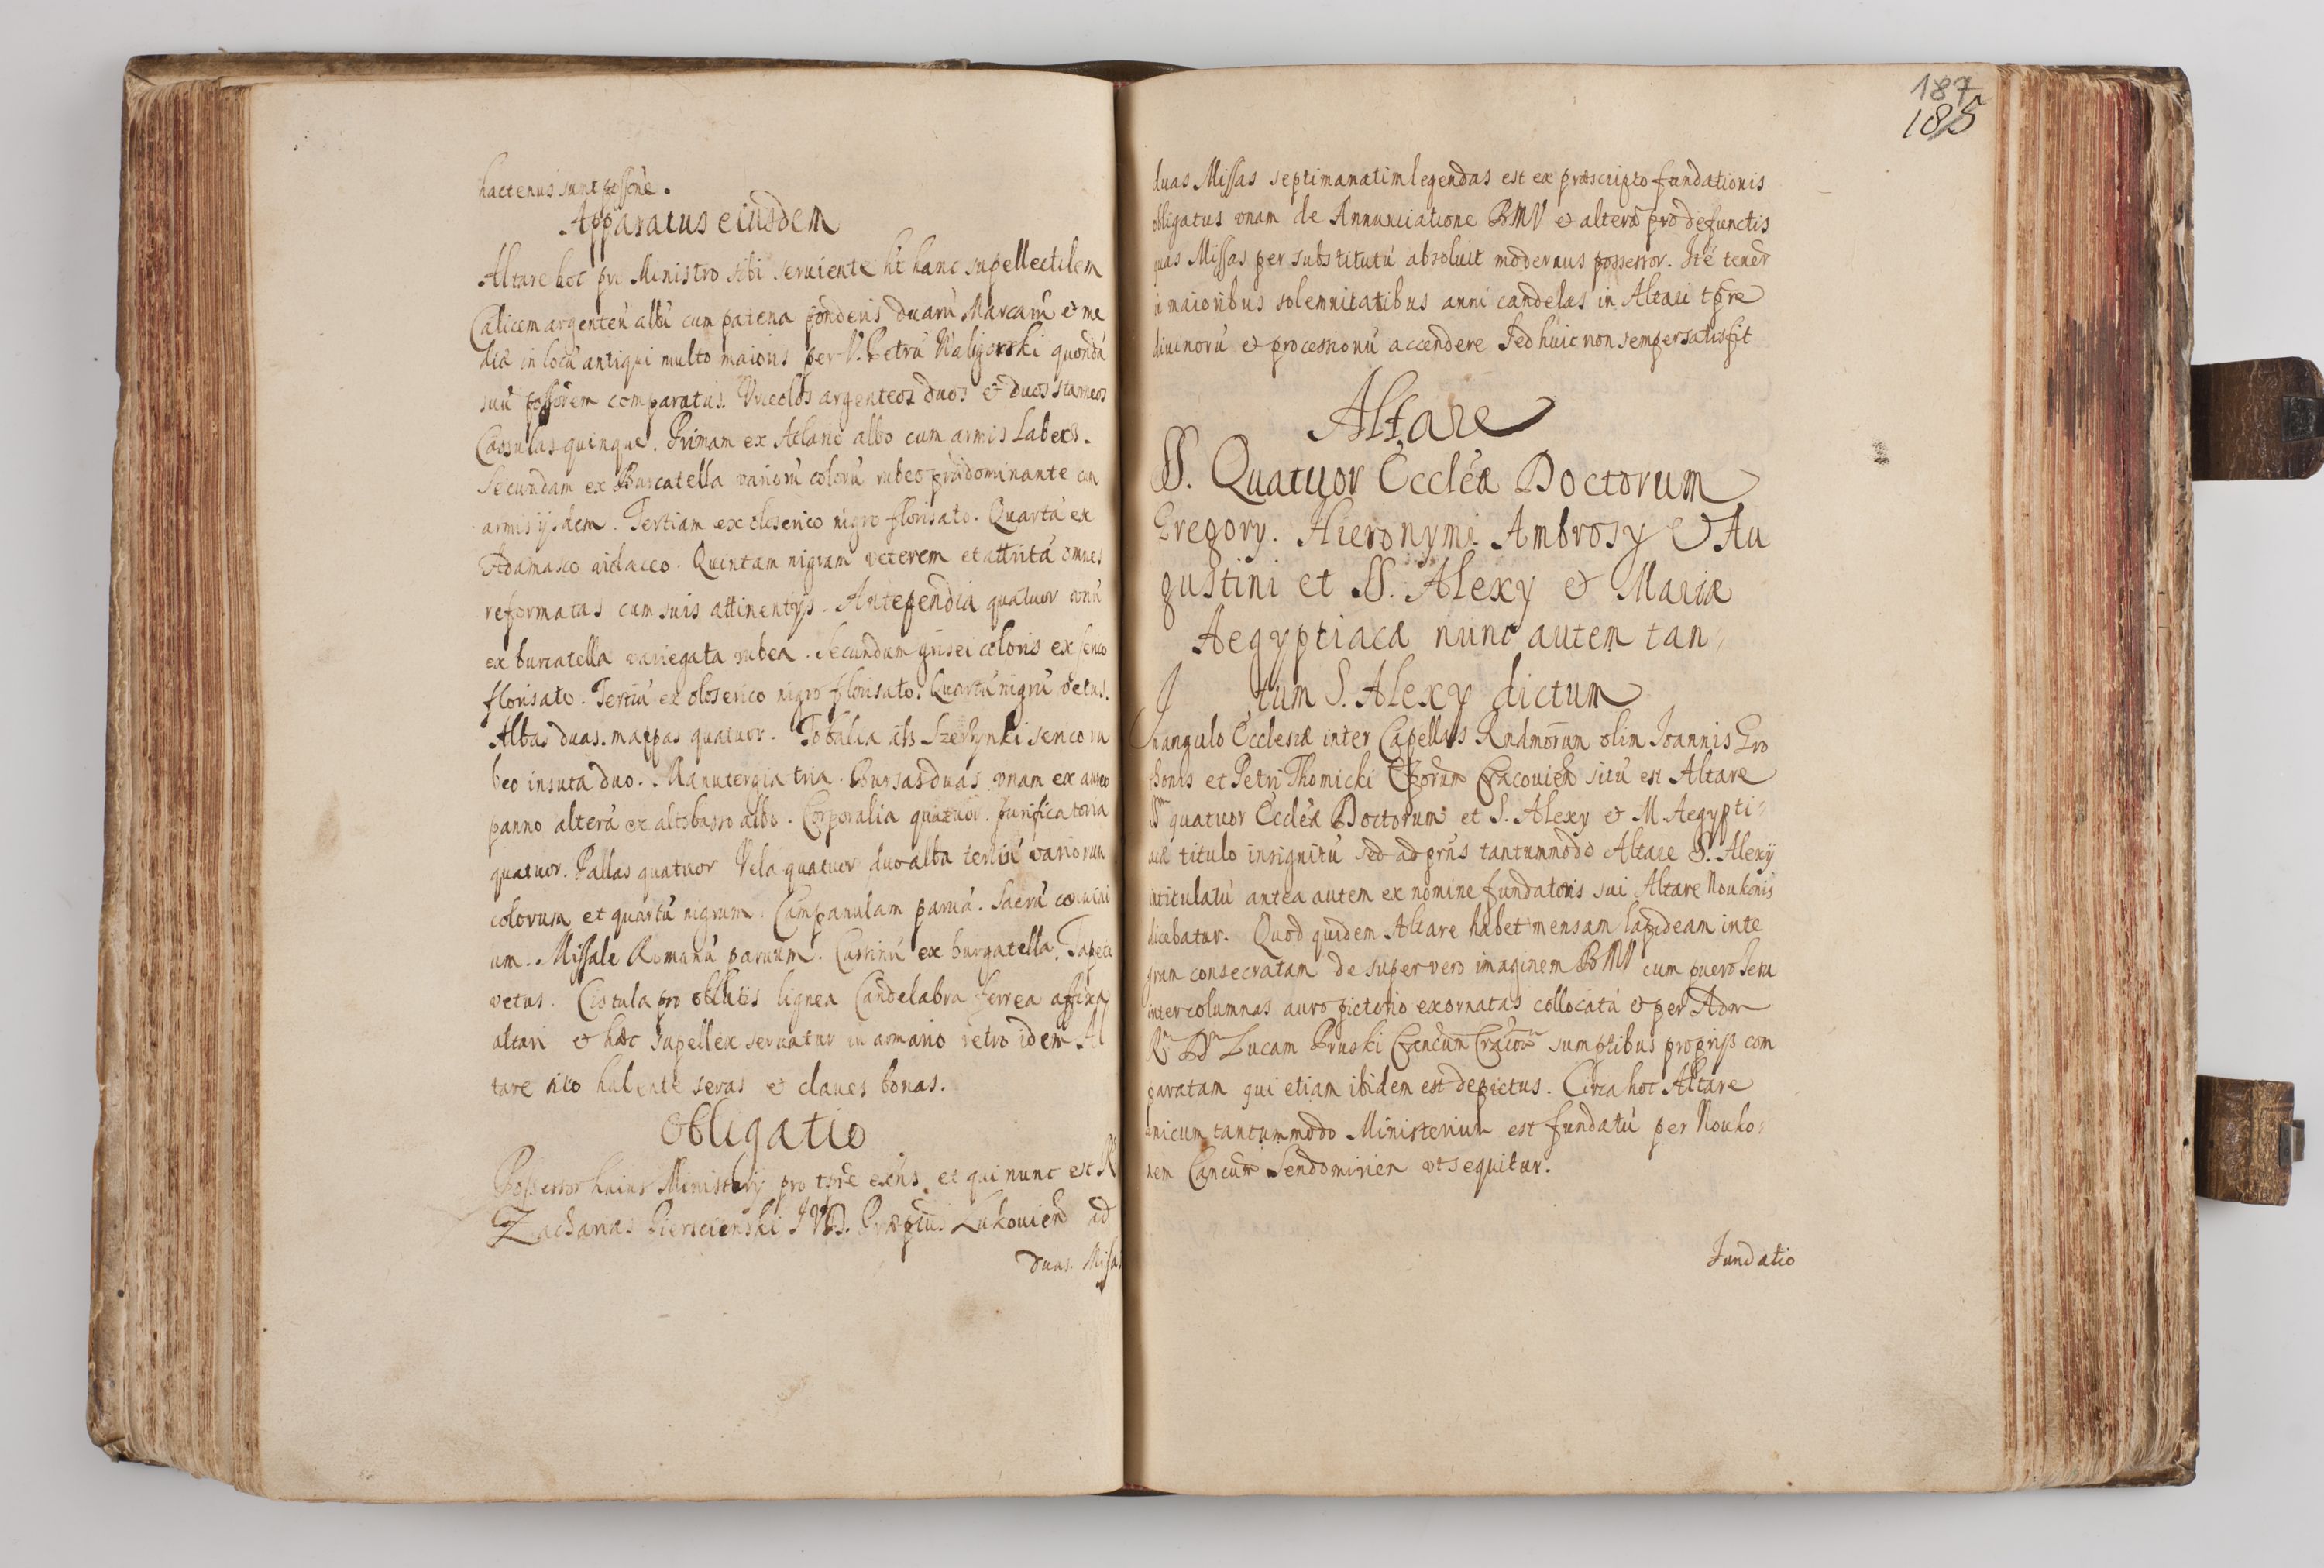 hactenus sunt possõne.
Apparatus eiusdem
Altare hoc prò Ministro sibi seruiente ht hanc supellectilem
Calicem argenteũ albũ cum patena ponderis duarũ Marcarũ et me
diæ in locũ antiqui multo maioris per V. Petrũ Waligorski quondã
suũ possõrem comparatus. Vrceolos argenteos duos et duos stanneos
Casulas quinque. Primam ex Atlanc albo cum armis Labets.
Secundam ex Burcatella variorũ colorũ rubeo prædominante cun
armis ijsdem. Tertiam ex oloserico nigro florisato. Quartã ex
Adamasco violaceo. Quintam nigram veterem et attritã omnes
reformatas cum suis attinentijs. Antependia quatuor vnũ
ex burcatella variegata rubea. Secundum grisei coloris ex serico
florisato. Tertiũ ex oloserico nigro florisato. Quartũ nigrũ vetus.
Albas duas. mappas quatuor. Tobalia als serico ru
beo insuta duo. Manutergia tria. Bursas duas vnam ex aureo
panno alterã ex altobasso albo. Corporalia quatuor. purificatoria
quatuor. Pallas quatuor Vela quatuor duo alba tertiũ variorum
colorum et quartũ nigrum. Campanulam paruã. Sacrũ conuiui
um. Missale Romanũ paruum. Cussinũ ex burgatella. Tapeta
vetus. Cistula pro oblatis lignea Candelabra ferrea affixa
altari et hæc supellex seruatur in armario retro idem Al
tare sito habente seras et claues bonas.
Obligatio
Possessor huius Ministerij pro tpre exñs et qui nunc est R
Zacharias Pierscienski I V D. Præptũ. Lukouien ad
duas Missas
187
185
duas Missas septimanatim legendas est ex præscripto fundationis
obligatus vnam de Annunciatione BMV et alterã pro defunctis
quas Missas per substitutũ absoluit modernus possessor. Itẽ tenet̃r
in maioribus solemnitatibus anni candelas in Altari tpre
diuinorũ et processionũ accendere sed huic non semper satisfit
Altare
SS. Quatuor Ecclẽæ Doctorum
Gregory. Hieronymi. Ambrosy et Au
gustini et SS. Alexy et Mariæ
Aegyptiacæ nunc autem tan,
tum S. Alexy dictum
In angulo Ecclesiæ inter Capellas Rndmorum olim Joannis Gro
thonis et Petri Thomicki Eporum Cracouien sitũ est Altare
Srm quatuor Ecclẽæ Doctorum et S. Alexy et M Aegypti,
acæ titulo insignitũ sed ad prñs tantummodo Altare S. Alexij
intitulatũ antea autem ex nomine fundatoris sui Altare Noukonis
dicebatur. Quod quidem Altare habet mensam lapideam inte
gram consecratam de super vero imaginem BMV cum puero Iesu
inter columnas auro pictorio exornatas collocatã et per Adm
Rm Dm Lucam Pruski Cancum Craco͠n sumptibus proprijs com
paratam qui etiam ibidem est depictus. Circa hoc Altare
vnicum tantummodo Ministerium est fundatũ per Nouko,
nem Cancum Sendomirien vt sequitur.
Fundatio